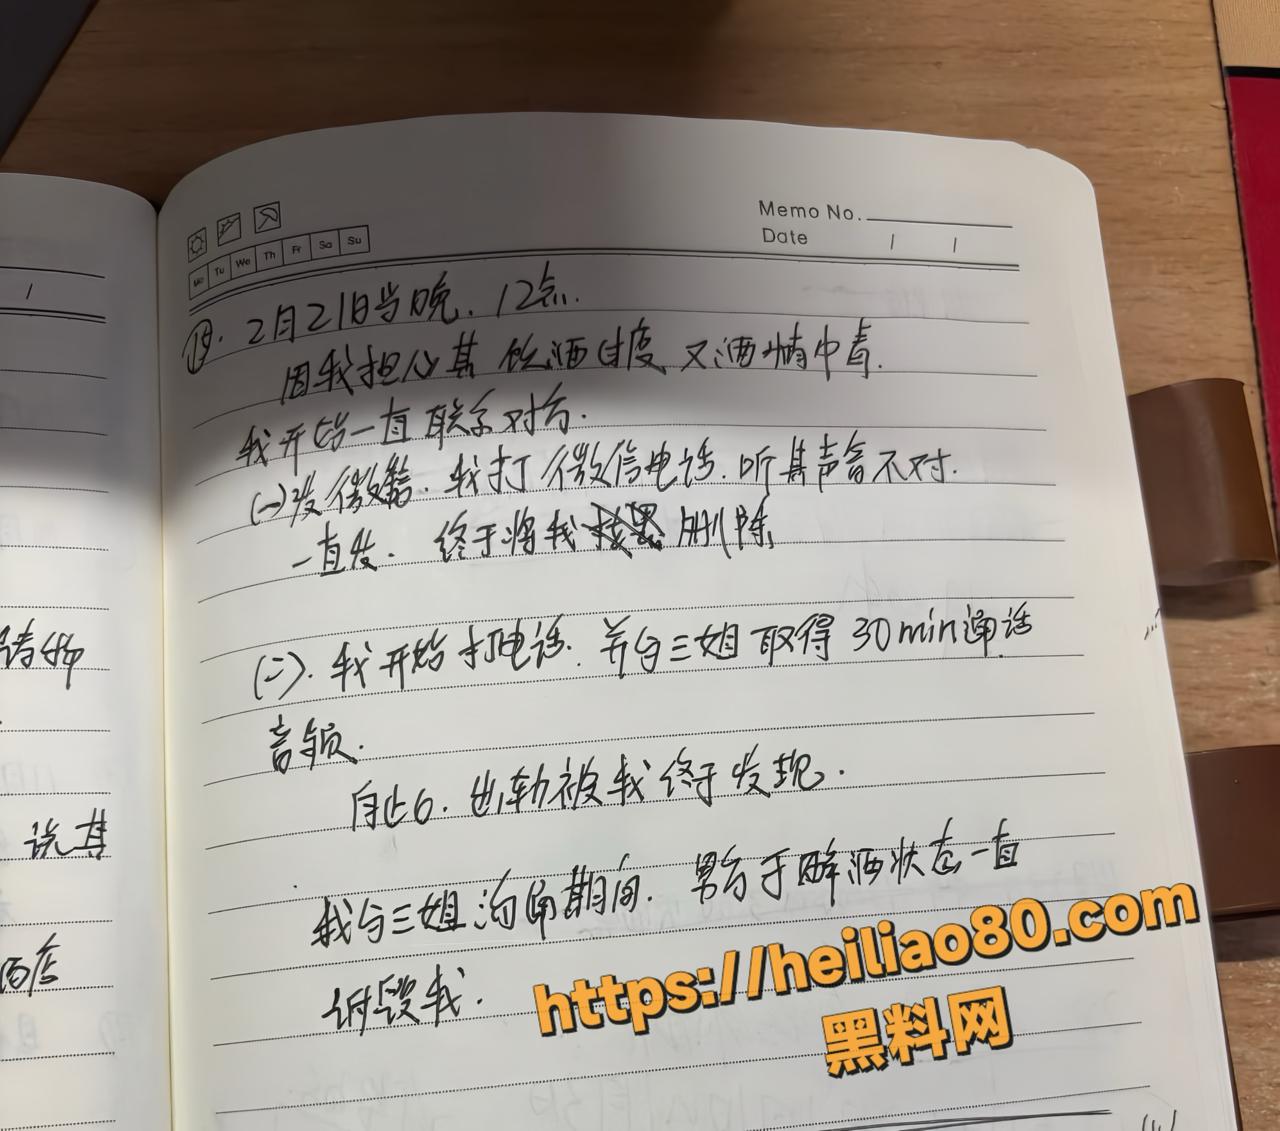 Memo No.
Date / /
Mo Tu We Th Fr Sa Su
⑮. 2月21日当晚. 12点.
因我担心其 饮酒过度 又酒精中毒.
我开始一直联系对方.
(一)发微信. 我打微信电话. 听其声音不对.
一直发. 终于将我 删除
(二). 我开始打电话. 并与三姐取得30min通话
音频.
自此6. 出轨被我终于发现.
我与三姐沟通期间. 男方于醉酒状态一直
诋毁我.
说其
酒店
https://heiliao80.com
黑料网